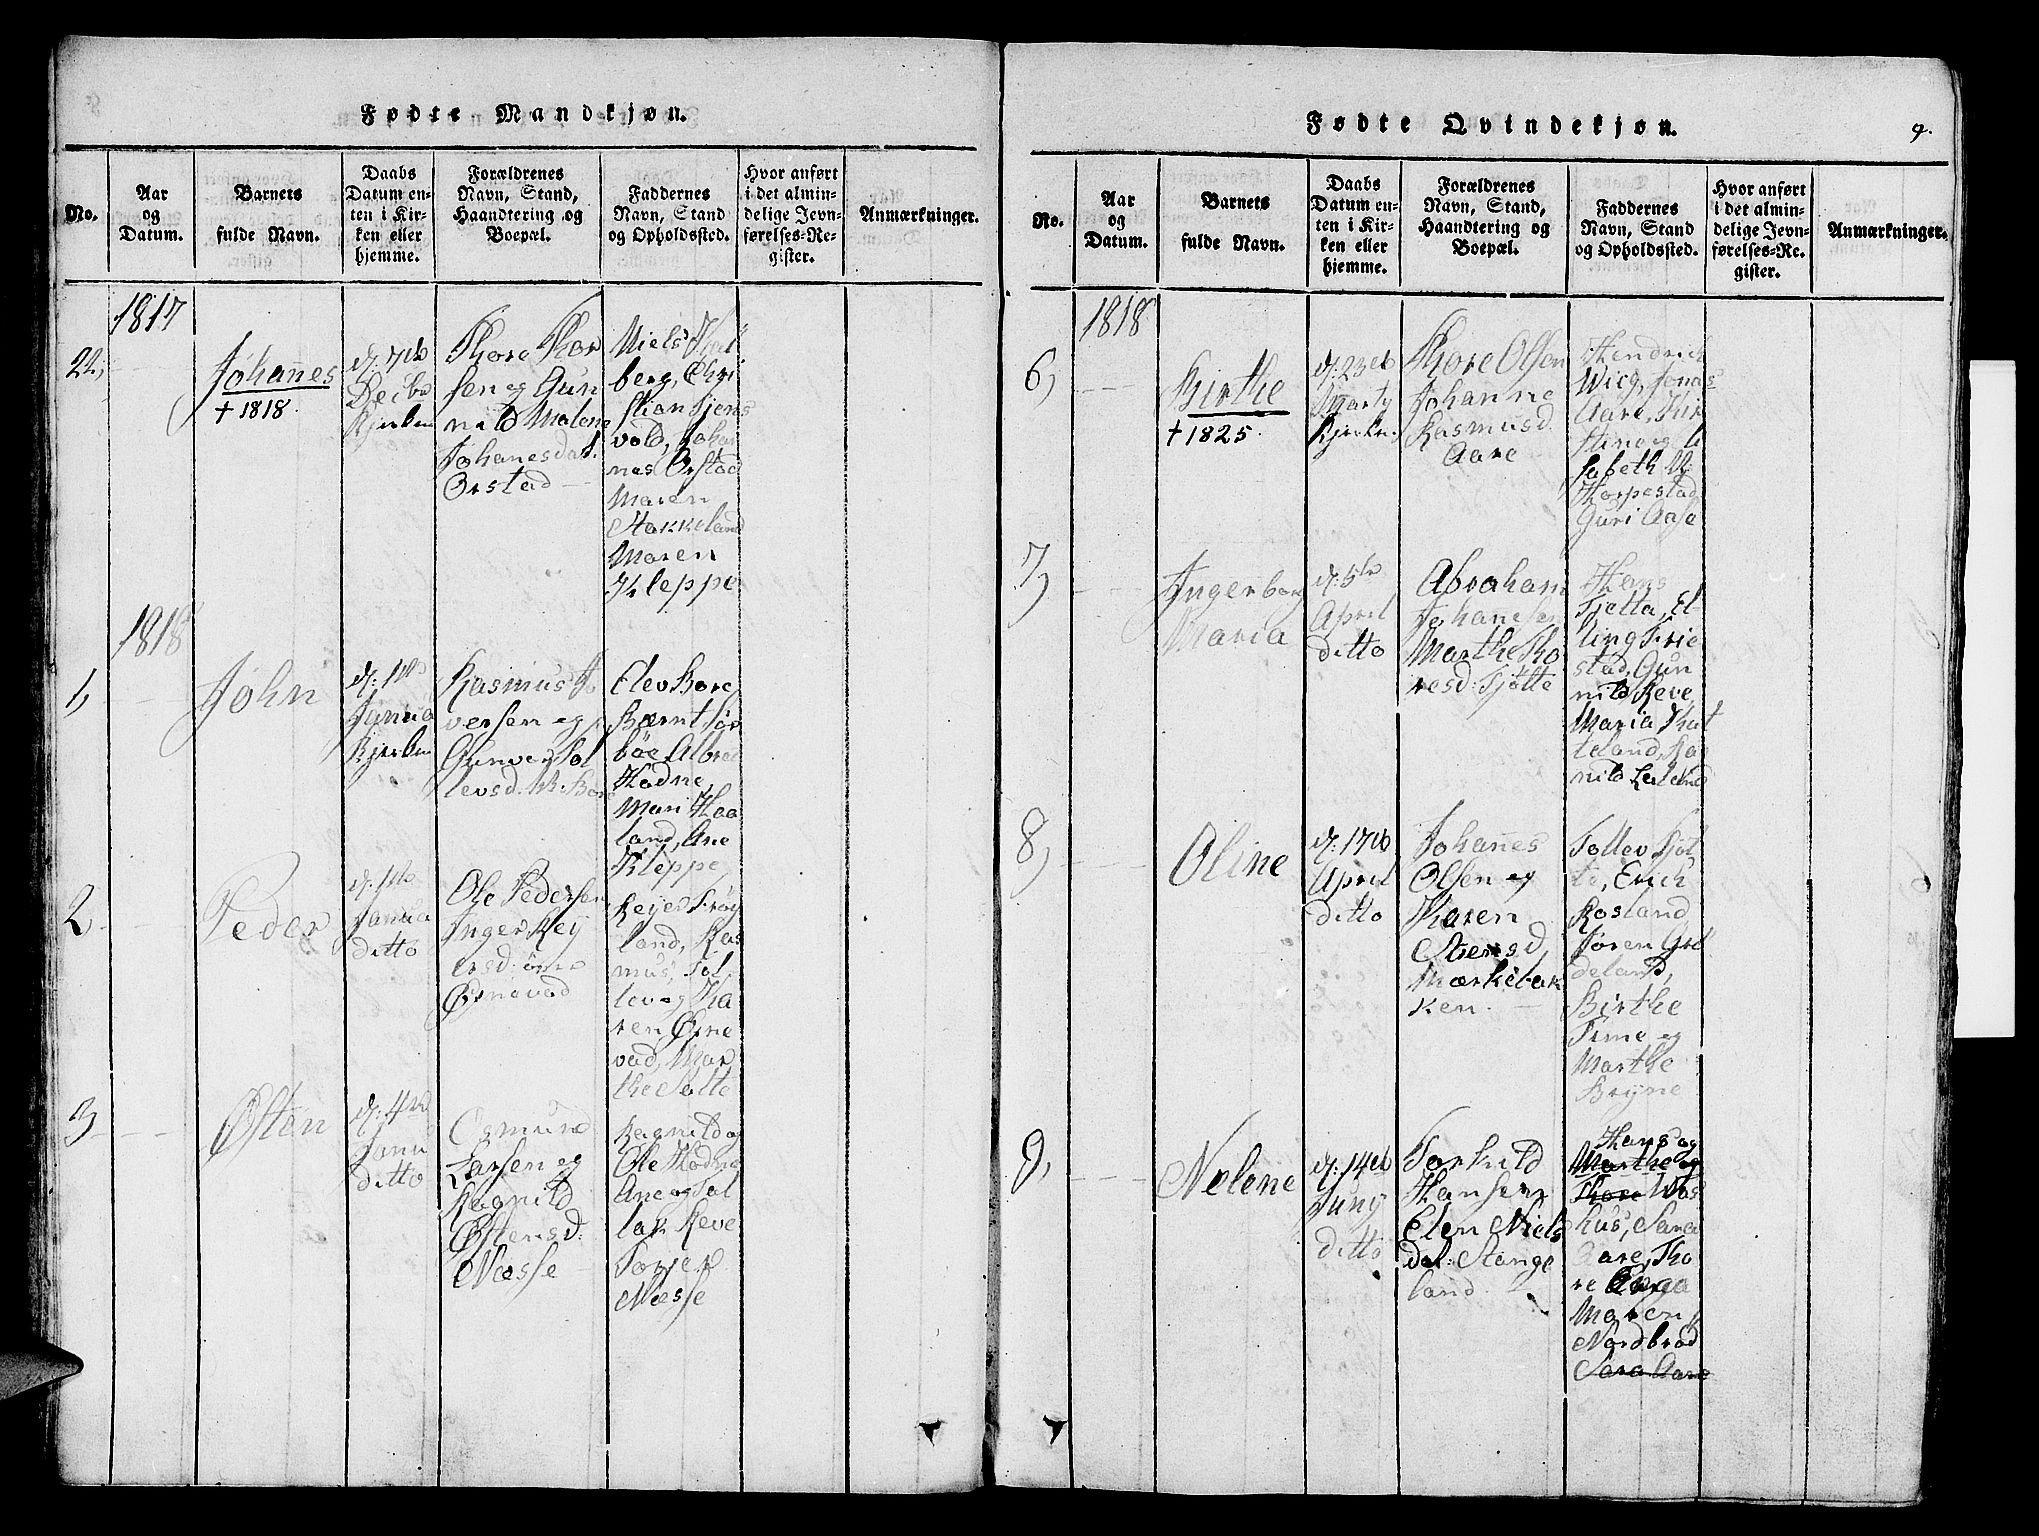 Fødte Mandkjøn.
No.
Aar
og
Datum.
Barnets
fulde Navn.
Daabs
Datum en-
ten i Kir-
ken eller
hjemme.
Forældrenes
Navn, Stand,
Haandtering og
Boepæl.
Faddernes
Navn, Stand
og Opholdssted.
Hvor anført
i det almin-
delige Jevn-
førelses-Re-
gister.
Anmærkninger.
1817
22,
Johannes
+ 1818.
d: 7de
Decbr
Kjerken
Thore Thor
sen og Gun
nild Malene
Johanesdat.
Orstad
Niels Kal
berg, Chri
stian Bjens
vold, Johan
nes Orstad
Maren
Stokkeland
Maren
Kleppe
1818
1,
John
d: 1ste
Janua
Kjerken
Rasmus I
versen og
Gunver Tol
levsd. N: Bore
Elev Bore,
Bærnt Sør
bøe Albret
Hodne,
Mari Haa
land, Ane
Kleppe,
2
Peder
d: 1ste
Janua
ditto
Ole Pedersen
Inger Reij
ersd:
Ørnevad
Reijer Frøy
land, Ras
mus, Tol
lev og Ka
ren, Ørne
vad, Mar
the Salte
3
Østen
d: 4de
Janu
ditto
Ogmund
Larsen og
Ragnild
Østensd:
Næsse
Ragnild og
Ole Hodne
Ane og Tol
lak Reve
Torjer
Næsse
Fødte Qvindekjøn.
9.
No.
Aar
og
Datum.
Barnets
fulde Navn.
Daabs
Datum en-
ten i Kir-
ken eller
hjemme.
Forældrenes
Navn, Stand,
Haandtering og
Boepæl.
Faddernes
Navn, Stand
og Opholdssted.
Hvor anført
i det almin-
delige Jevn-
førelses-Re-
gister.
Anmærkninger.
1818
6,
Birthe
+ 1825.
d: 23de
Marty
Kjerke.
Thore Olsen
Johanne
Rasmusd.
Aare
Hendrich
Wiig, Jonas
Aare, Kir
stine og li
sabeth N:
Thorpestad
Guri Aase
7,
Ingerborg
Maria
d: 5te
April
ditto
Abraham
Johanesen
Marthe Tho
resd: Tjøtte
Hans
Tjotta, El
ling Frie
stad, Gun
nild Reve
Maria Kat
teland, Ra
nild Laland
8,
Oline
d: 17de
April
ditto
Johannes
Olsen og
Karen
Stensd,
Mærkebak
ken.
Tollev Tjøt
te, Erich
Rosland
Søren Gru
deland,
Birthe
Time og
Marthe
Bryne
9,
Nelene
d: 14de
Juny
ditto
Torkild
Hansen
Elen Niels
dal: Stange
land.
Hans og
Marthe og
Thore Vas
hus, Sara
Aare, Tho
re
Maren
Nordbrød
Sara Aare